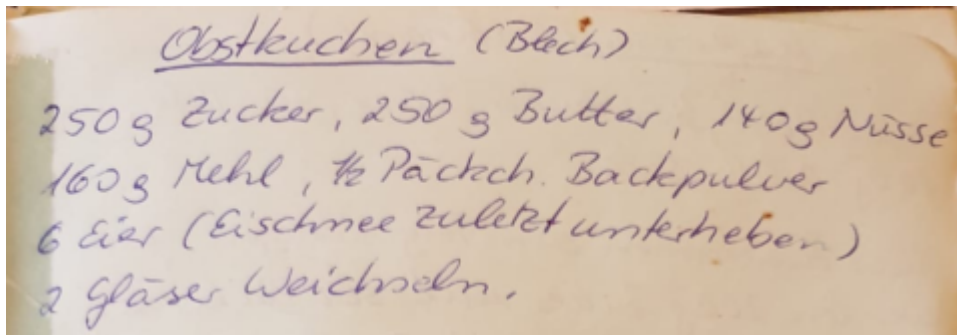 Obstkuchen (Blech)
250 g Zucker, 250 g Butter, 140 g Nüsse
160 g Mehl, ½ Päckch. Backpulver
6 Eier (Eischnee zuletzt unterheben)
2 Gläser Weichseln.